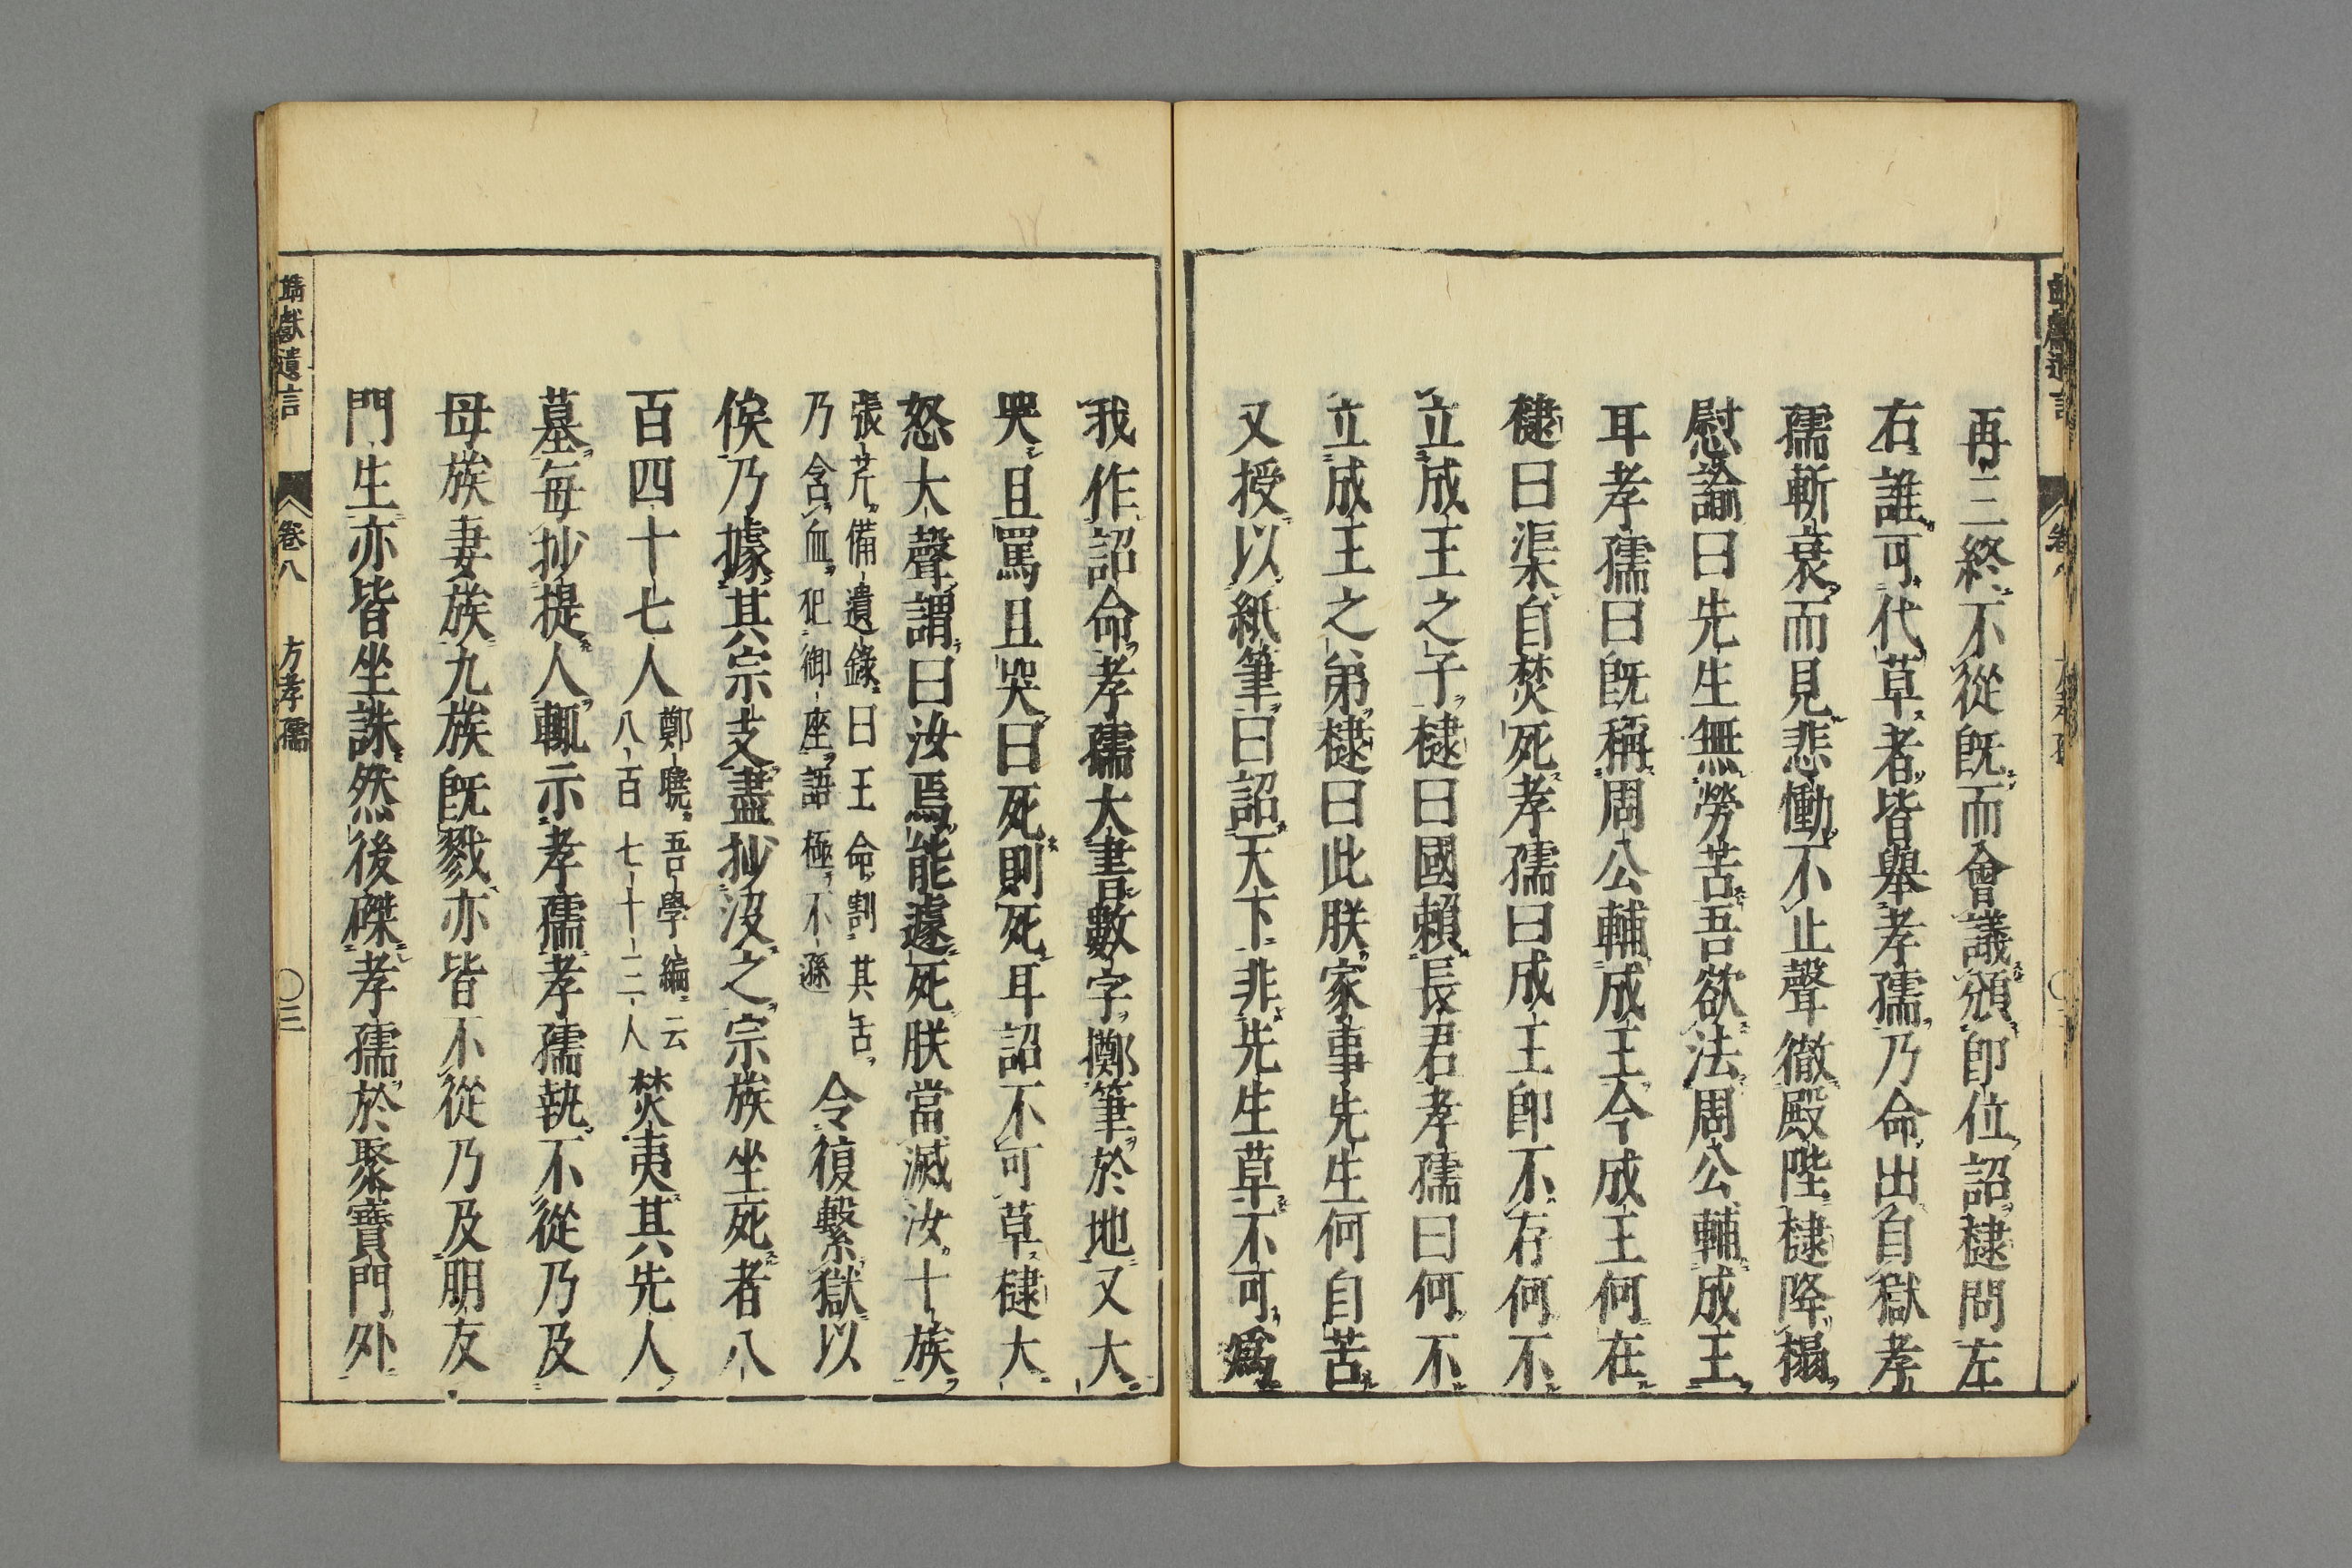 再三終不從旣而會議頒卽位詔棣問左
右誰可代草者皆舉孝孺乃命出自獄孝
孺斬衰而見悲慟不止聲徹殿陛棣降榻
慰諭曰先生無勞苦吾欲法周公輔成王
耳孝孺曰旣稱周公輔成王今成王何在
棣曰渠自焚死孝孺曰成王卽不存何不
立成王之子棣曰國賴長君孝孺曰何不
立成王之弟棣曰此朕家事先生何自苦
又授以紙筆曰詔天下非先生草不可爲
我作詔命孝孺大書數字擲筆於地又大
哭且罵且哭曰死則死耳詔不可草棣大
怒大聲謂曰汝焉能遽死朕當滅汝十族
張芹備遺錄曰王命割其舌
乃含血犯御座語極不遜
令復繫獄以
俟乃據其宗支盡抄沒之宗族坐死者八
百四十七人
鄭曉吾學編云
八百七十三人
焚夷其先人
墓每抄提人輒示孝孺孝孺執不從乃及
母族妻族九族旣戮亦皆不從乃及朋友
門生亦皆坐誅然後磔孝孺於聚寶門外
靖獻遺言 卷八 方孝孺 〇三